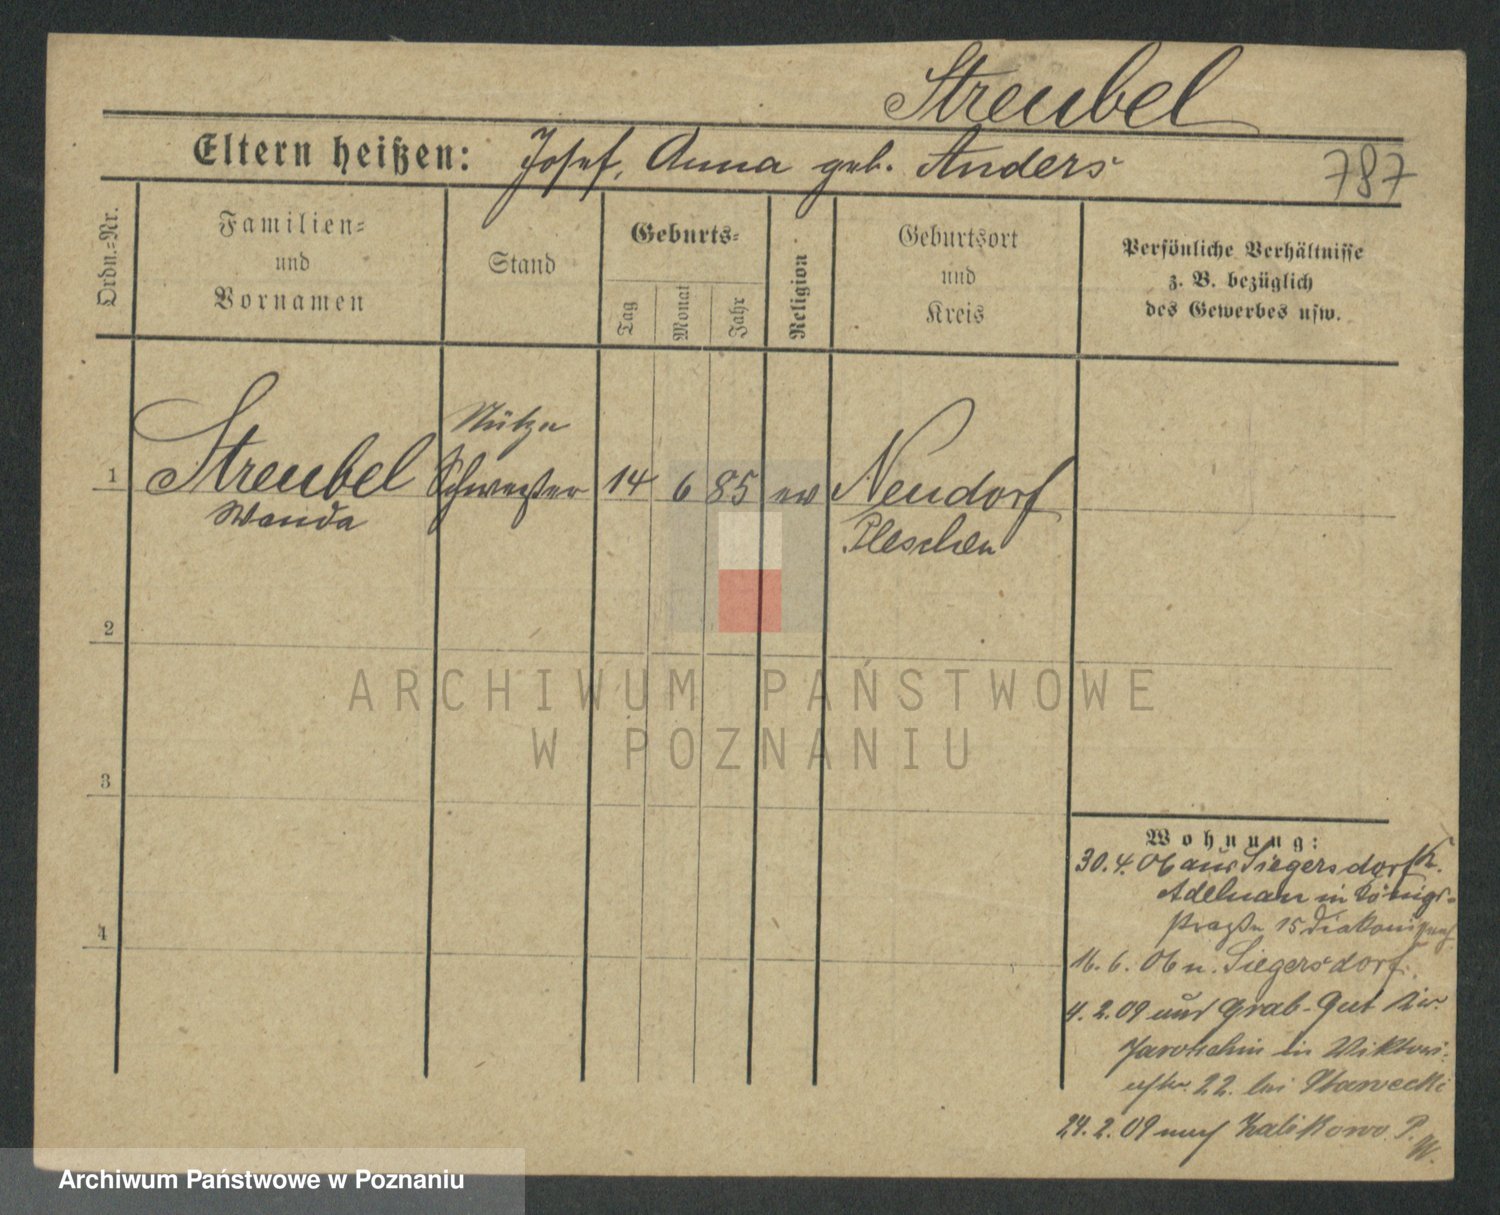 Streubel
Eltern heißen: Josef, Anna geb. Anders
787
Ordn.=Nr.
Familien=
und
Vornamen
Stand
Geburts=
Tag
Monat
Jahr
Religion
Geburtsort
und
Kreis
Persönliche Verhältnisse
z. B. bezüglich
des Gewerbes usw.
Stütze
1 Streubel Schwester 14 6 85 ev Neudorf
Wanda Pleschen
2
3
4
ARCHIWUM PAŃSTWOWE
W POZNANIU
Wohnung:
30.4.06 aus Siegersdorf K.
Adelnau in Königs-
straße 15
16.6.06 n. Siegersdorf.
4.2.09 aus Grab-Gut Kr.
Jarotschin in Viktori-
astr. 22. bei
24.2.09 nach Zalikowo. P.
W.
Archiwum Państwowe w Poznaniu